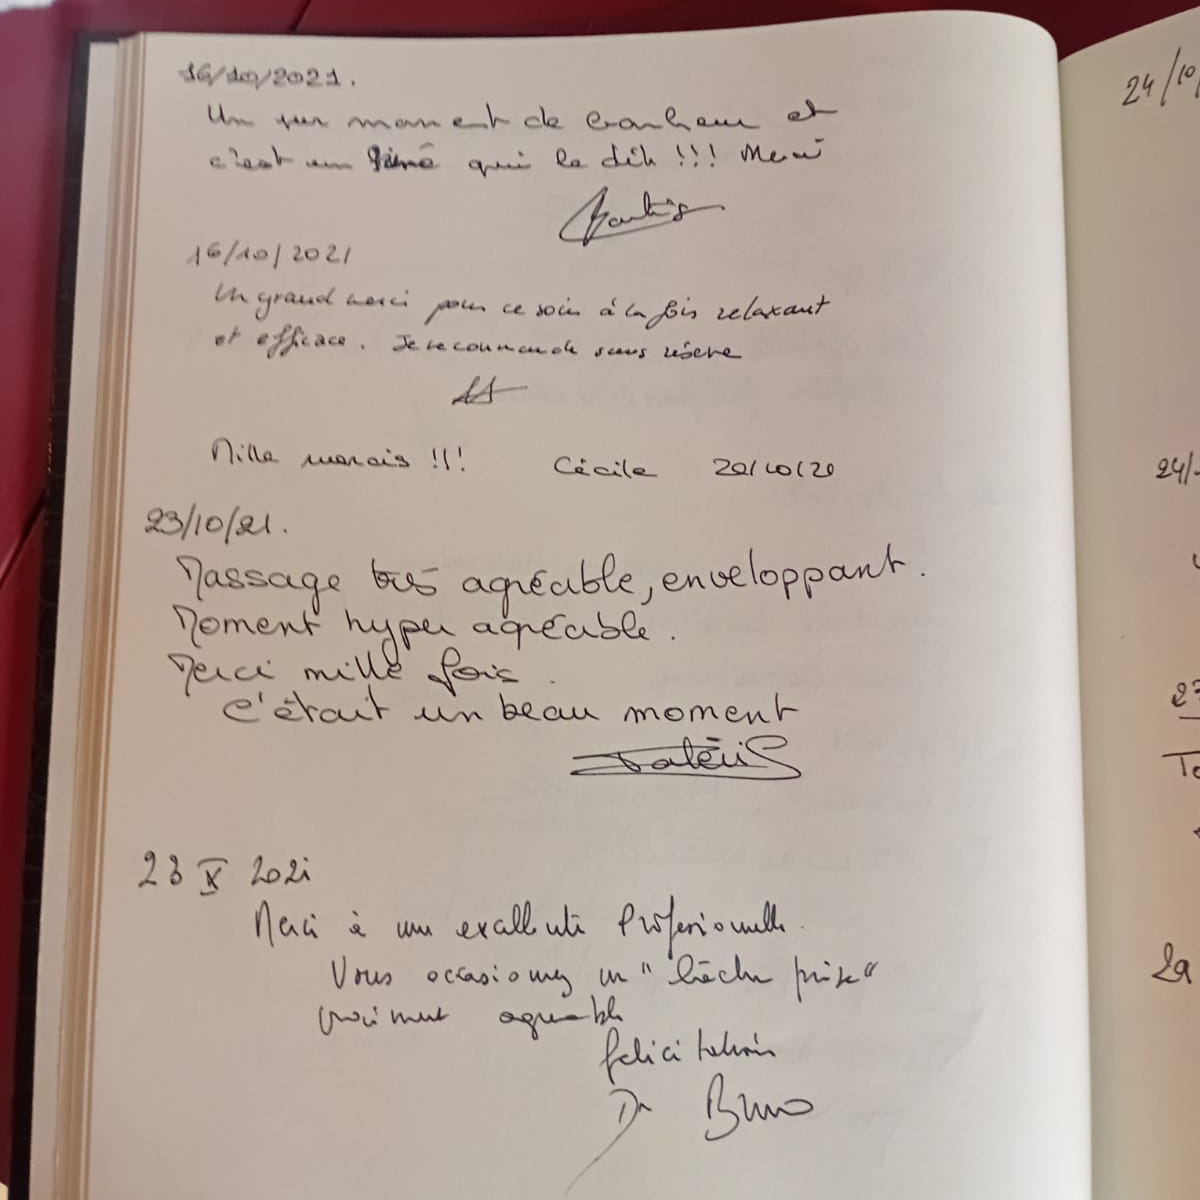 16/10/2021.
Un pur moment de bonheur et
c'est un kiné qui le dit !!! Merci
16/10/2021
Un grand merci pour ce soin à la fois relaxant
et efficace. Je recommande sans réserve
Mille mercis !!! Cécile 20/10/20
23/10/21.
Massage très agréable, enveloppant.
Moment hyper agréable.
Merci mille fois.
C'était un beau moment
Valérie
23 X 2021
Merci à une excellente Profesionnelle.
Vous occasionnez un "lâcher prise"
vraiment agreable
felicitations
Dr Bruno
24/10/
24/
27
To
29